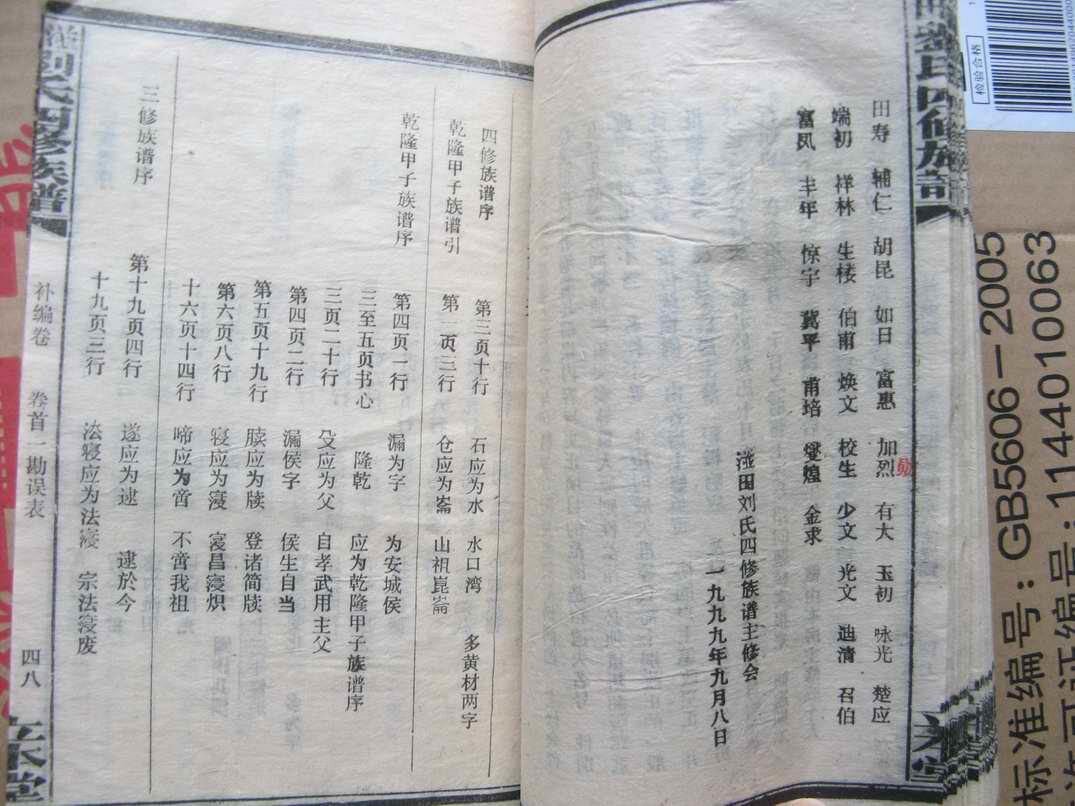 刘氏四修族谱
田寿 辅仁 胡昆 如日 富惠 加烈 有大 玉初 咏光 楚应
勋
端初 祥林 生楼 伯甫 焕文 校生 少文 光文 迪清 召伯
富凤 丰年 惊宇 冀平 甫培 燮煌 金求
刘氏四修族谱主修会
一九九九年九月八日
四修族谱序 第三页十行 石应为水 水口湾 多黄材两字
乾隆甲子族谱引 第一页三行 仓应为崙 山祖崑崙
乾隆甲子族谱序 第四页一行 漏为字 为安城侯
三至五页书心 隆乾 应为乾隆甲子族谱序
三页二十行 殳应为父 自孝武用主父
第四页二行 漏侯字 侯生自当
第五页十九行 牍应为牍 登诸简牍
第六页八行
十六页十四行 啼应为啻 不啻我祖
三修族谱序 第十九页四行 遂应为逮 逮於今
十九页三行
刘氏四修族谱 补编卷 卷首一勘误表 四八
检验合格
标准编号:GB5606-2005
许可证号:1144010063